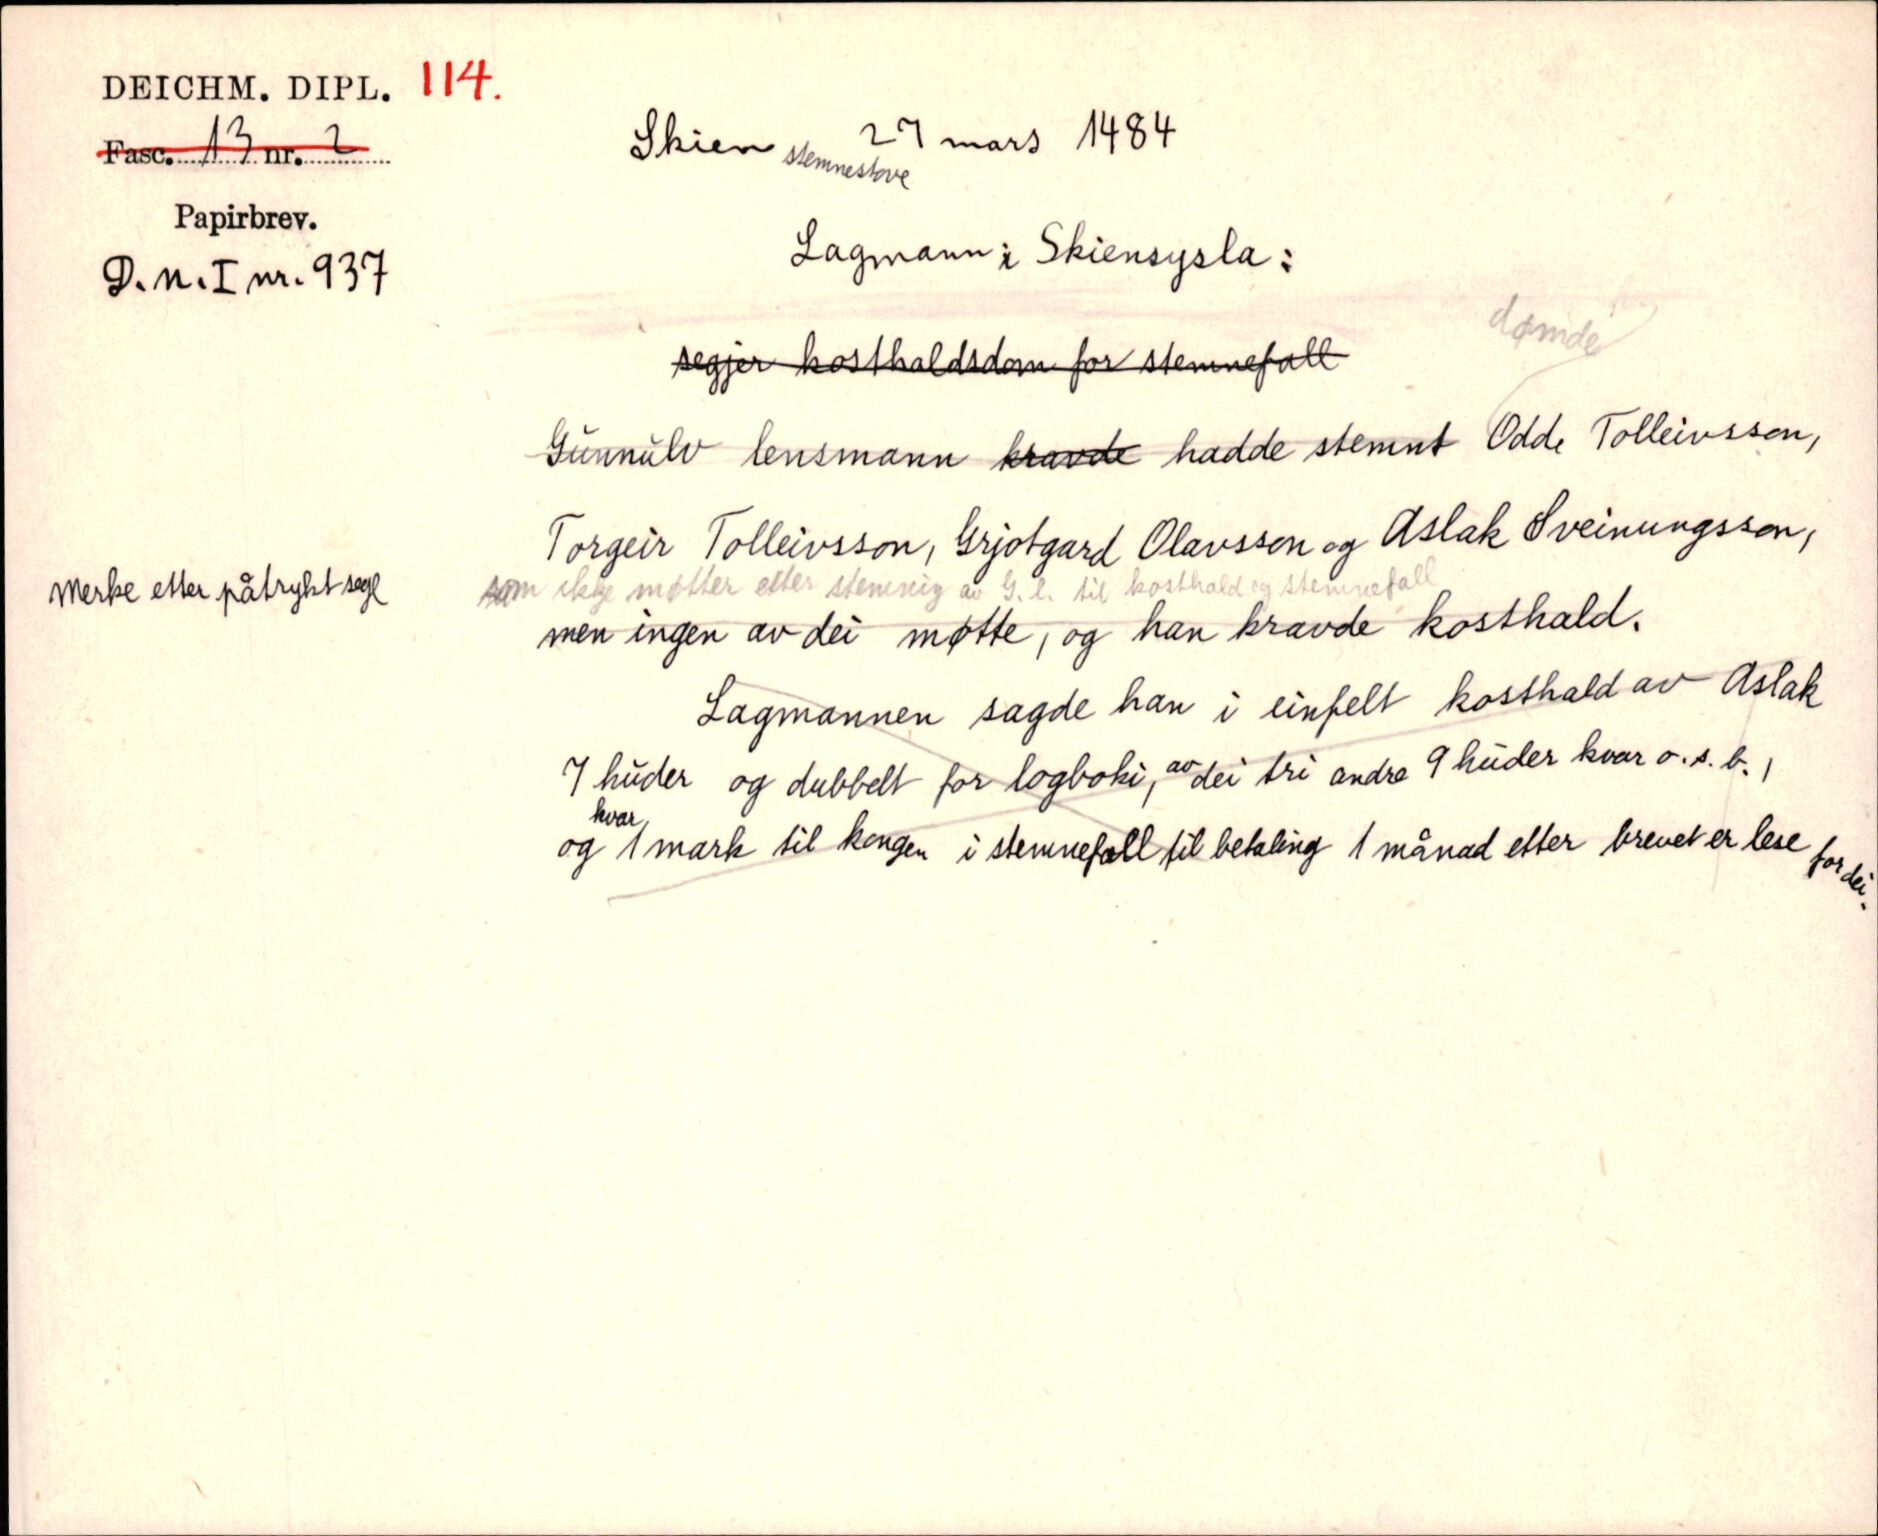 DEICHM. DIPL. 114.
Fasc. 13 nr. 2
Papirbrev.
D.N. I nr. 937
Skien 27 mars 1484
stemnestove
Lagmann i Skiensysla:
segjer kosthaldsdom for stemnefall
dømde
Gunnulv lensmann kravde hadde stemnt Odde Tolleivsson,
Torgeir Tolleivsson, Grjotgard Olavsson og Aslak Sveinungsson,
Merke etter påtrykt segl
som ikkje møtter etter stemnig av G. l. til kosthald og stemnefall
men ingen av dei møtte, og han kravde kosthald.
Lagmannen sagde han i einfelt kosthald av Aslak
7 huder og dubbelt for logboki, av dei tri andre 9 huder kvar o.s.b.,
kvar
og 1 mark til kongen i stemnefall til betaling 1 månad etter brevet er lese for dei.